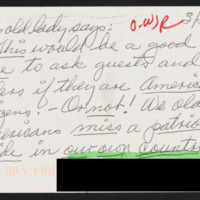 old lady says: O.WSR 3/
this would be a good
to ask guests and
if they are America
. - Or not! We old
miss a patrio
in our own count